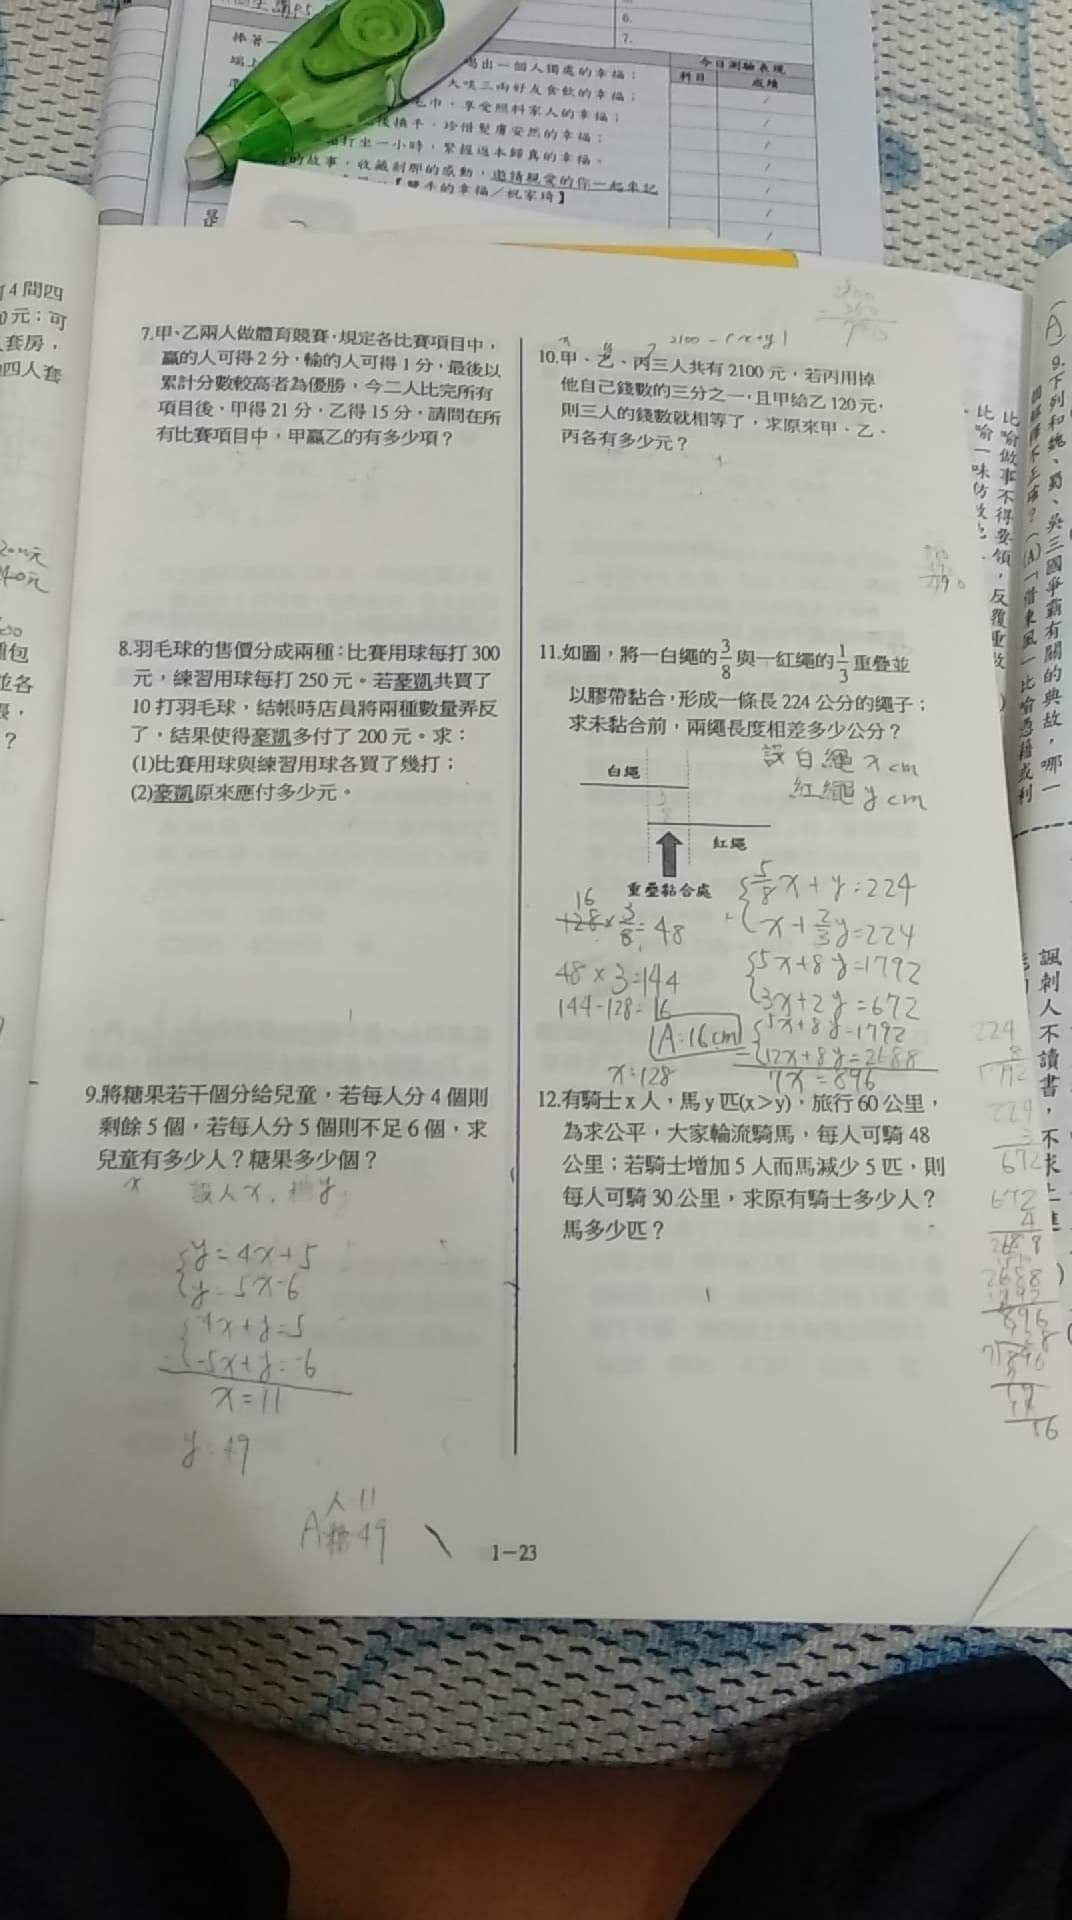 6.
7.
今日測驗表現
科目
成績
捧著一
喝出一個人獨處的幸福；
端上
大啖三兩好友食飲的幸福；
毛巾，享受照料家人的幸福；
珍惜髮膚安然的幸福；
打坐一小時，
的故事，收藏剎那的感動，邀請親愛的你一起來記
【雙手的幸福／祝家琦】
4間四
0元；可
套房，
四人套
7.甲、乙兩人做體育競賽，規定各比賽項目中，
贏的人可得2分，輸的人可得1分，最後以
累計分數較高者為優勝，今二人比完所有
項目後，甲得21分，乙得15分，請問在所
有比賽項目中，甲贏乙的有多少項？
8.羽毛球的售價分成兩種：比賽用球每打300
元，練習用球每打250元。若豪凱共買了
10打羽毛球，結帳時店員將兩種數量弄反
了，結果使得豪凱多付了200元。求：
(1)比賽用球與練習用球各買了幾打；
(2)豪凱原來應付多少元。
9.將糖果若干個分給兒童，若每人分4個則
剩餘5個，若每人分5個則不足6個，求
兒童有多少人？糖果多少個？
x
設人x，糖y
y=4x+5
y=5x-6
-4x+y=5
-5x+y=-6
x=11
y=49
人 11
A 糖 49
2100-(x+y)
10.甲、乙、丙三人共有2100元，若丙用掉
他自己錢數的三分之一，且甲給乙120元，
則三人的錢數就相等了，求原來甲、乙、
丙各有多少元？
11.如圖，將一白繩的3/8與一紅繩的1/3重疊並
以膠帶黏合，形成一條長224公分的繩子；
求未黏合前，兩繩長度相差多少公分？
設白繩x cm
紅繩y cm
白繩
紅繩
重疊黏合處
5/8x+y=224
x+2/3y=224
5x+8y=1792
3x+2y=672
5x+8y=1792
12x+8y=2688
7x=896
x=128
16
128×3/8=48
48×3=144
144-128=16
A:16cm
12.有騎士x人，馬y匹(x>y)，旅行60公里，
為求公平，大家輪流騎馬，每人可騎48
公里；若騎士增加5人而馬減少5匹，則
每人可騎30公里，求原有騎士多少人？
馬多少匹？
224
8
1792
224
3
672
672
4
2688
2688
1792
896
1-23
(A)
9.下列和魏、蜀、吳三國爭霸有關的典故，哪一
(A)「借東風」比喻憑藉或利
比喻做事不得要領，反覆重
比喻一味仿效
諷刺人不讀書，不求上進